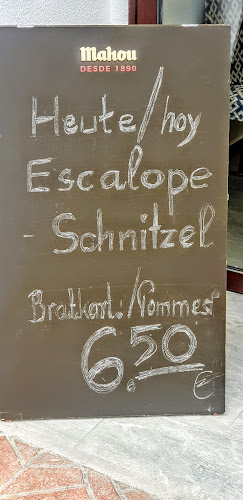 Mahou
DESDE 1890
Heute/hoy
Escalope
- Schnitzel
Bratkart./Pommes
6.50
€